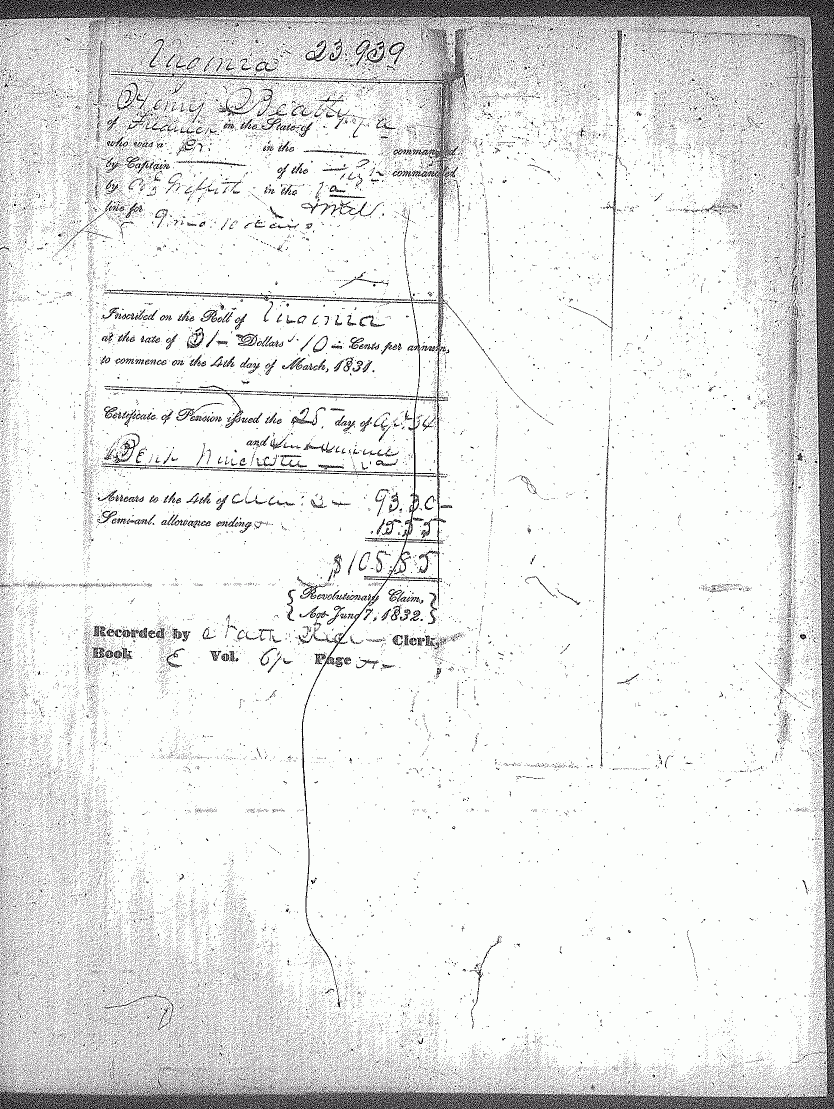 Virginia 23.939
Henry Beatty
of Frederick in the State of Va
who was a Pr. in the commanded
by Captain of the Regt commanded
by Col Griffith in the Va
line for
9 mo. 10 days
Inscribed on the Roll of Virginia
at the rate of 31 Dollars 10 Cents per annum,
to commence on the 4th day of March, 1831.
Certificate of Pension issued the 25 day of Apl. 34
and
Winchester Va
Arrears to the 4th of 93.30
Semi-anl. allowance ending 15.55
$108.85
Revolutionary Claim,
Act June 7, 1832.
Recorded by Clerk,
Book E Vol. 6½ Page